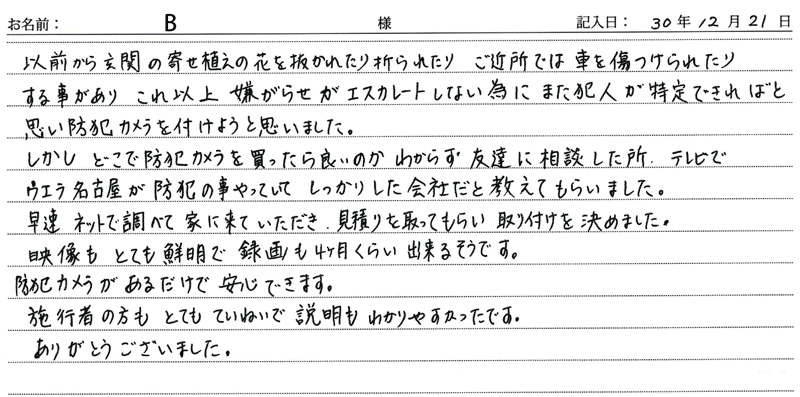 お名前： B 様 記入日： 30 年 12 月 21 日
以前から玄関の寄せ植えの花を抜かれたり折られたり ご近所では車を傷つけられたり
する事があり これ以上 嫌がらせがエスカレートしない為に また犯人が特定できればと
思い防犯カメラを付けようと思いました。
しかし どこで防犯カメラを買ったら良いのか わからず 友達に相談した所、テレビで
ウエラ名古屋が防犯の事やっていて しっかりした会社だと教えてもらいました。
早速 ネットで調べて 家に来ていただき、見積りを取ってもらい 取り付けを決めました。
映像も とても鮮明で 録画も4ヶ月くらい出来るそうです。
防犯カメラがあるだけで 安心できます。
施行者の方も とても ていねいで 説明も わかりやすかったです。
ありがとうございました。